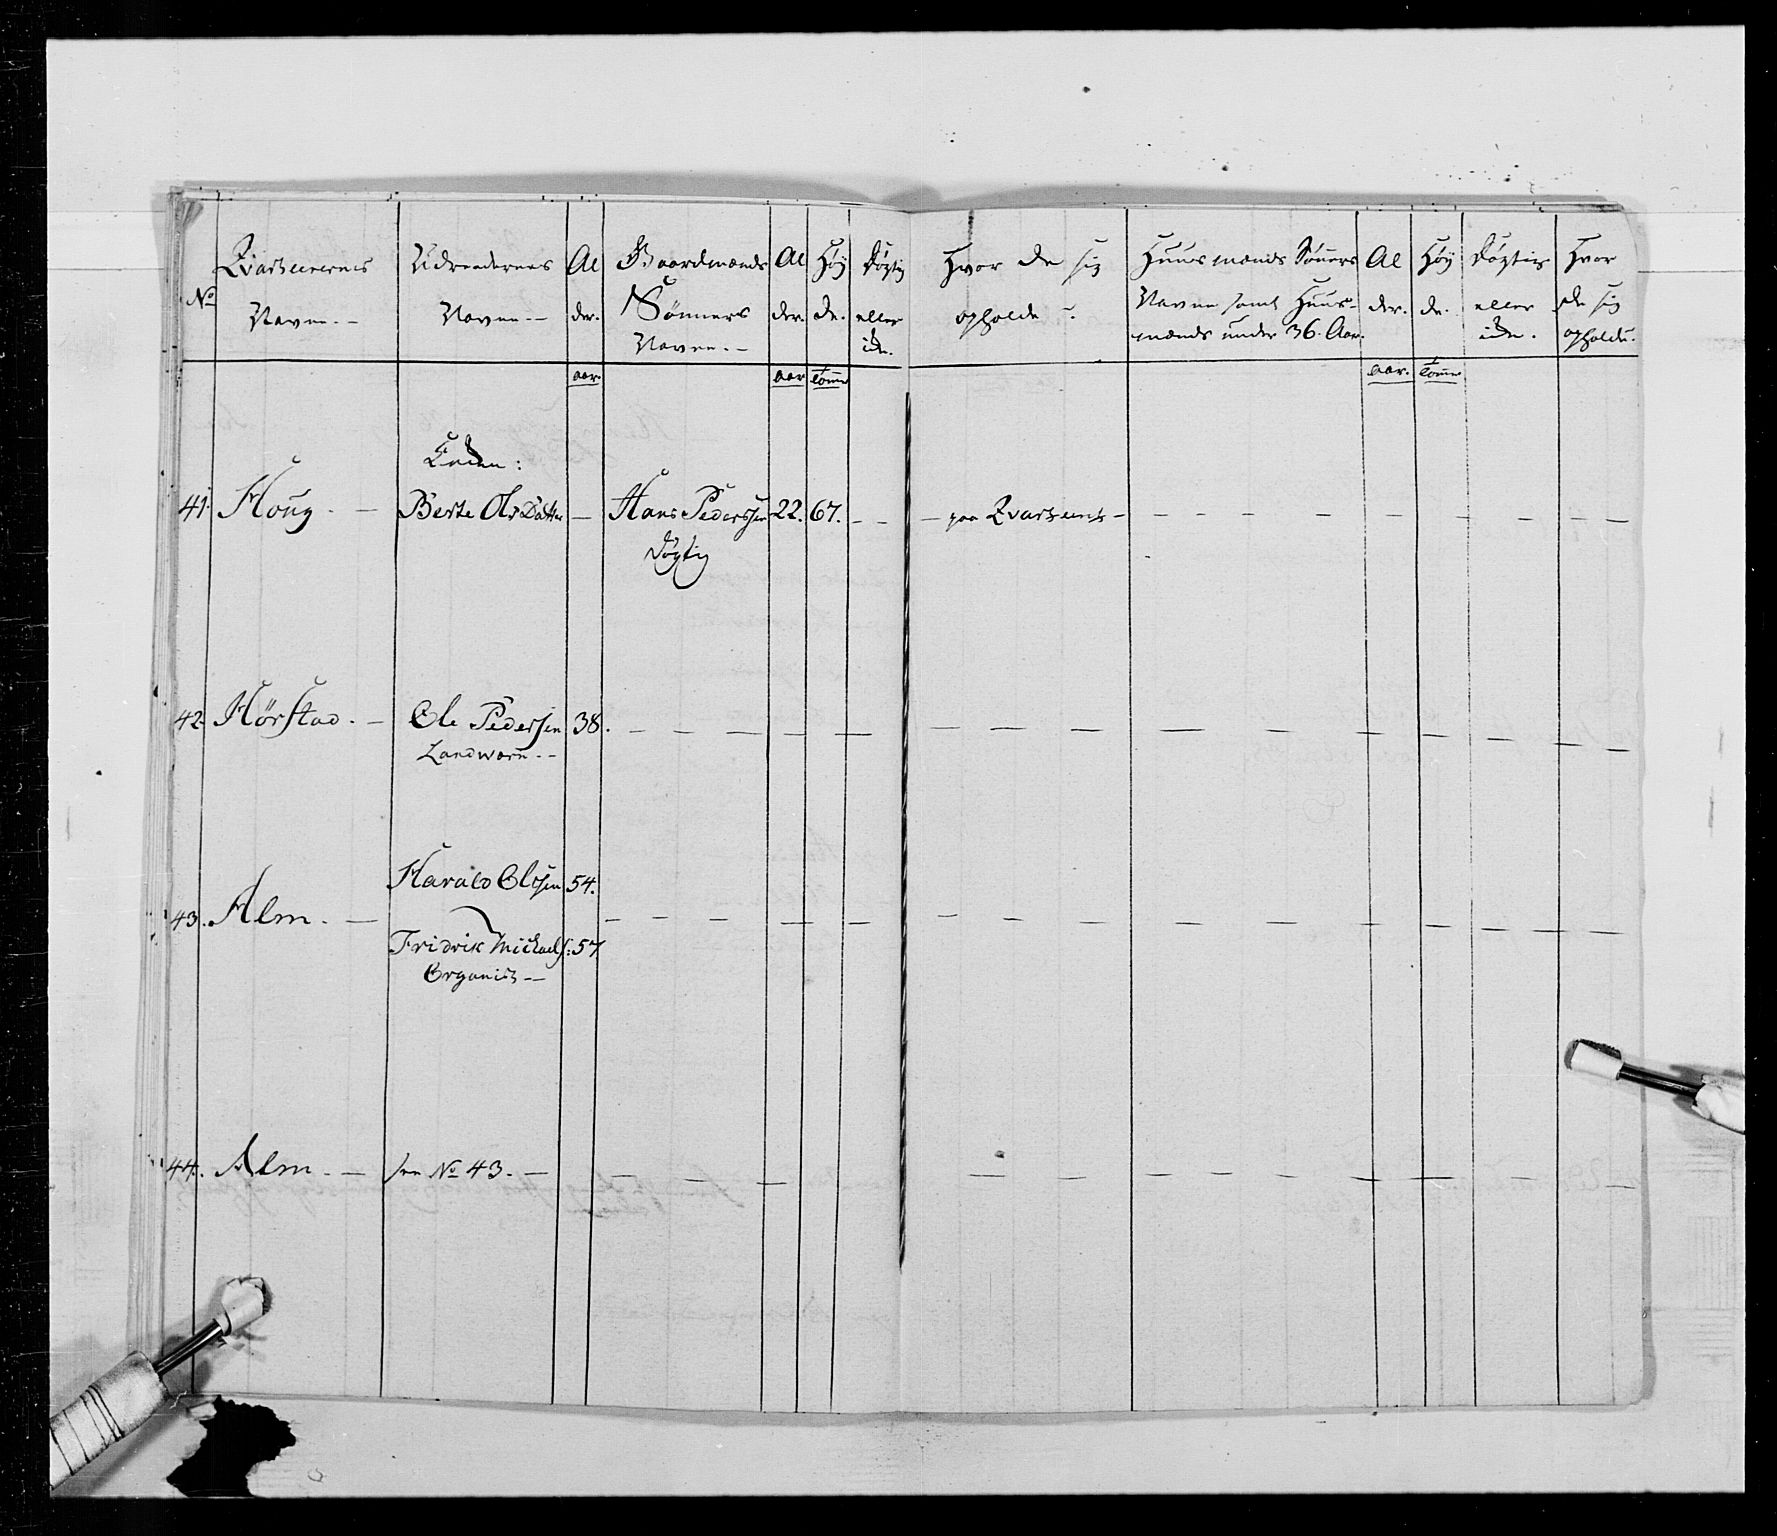 No
Qvarteerernes
Navne. -
Udreedernes
Navne -
Al
der.
Gaardmænds
Sønners
Navne. -
Al
der.
Høy
de.
døgtig
eller
ikke.
Hvor de sig
opholde.
Huusmænds Sønners
Navne samt Huus-
mænds under 36. Aar.
Al
der.
Høy
de.
døgtig
eller
ikke.
Hvor
de sig
opholde.
aar.
aar
Tomer
aar.
Tomer
Enken:
41. Houg. - Berte Ols Datter - Hans Pederssen 22. 67. - - - paa Qvarteeret -
døgtig
42. Hørstad. - Ole Pedersen 38.
Landværn. -
Harald Olsen 54.
43. Alm. -
Fridrik Michaels: 57
Organist -
44. Alm. - see No 43. -